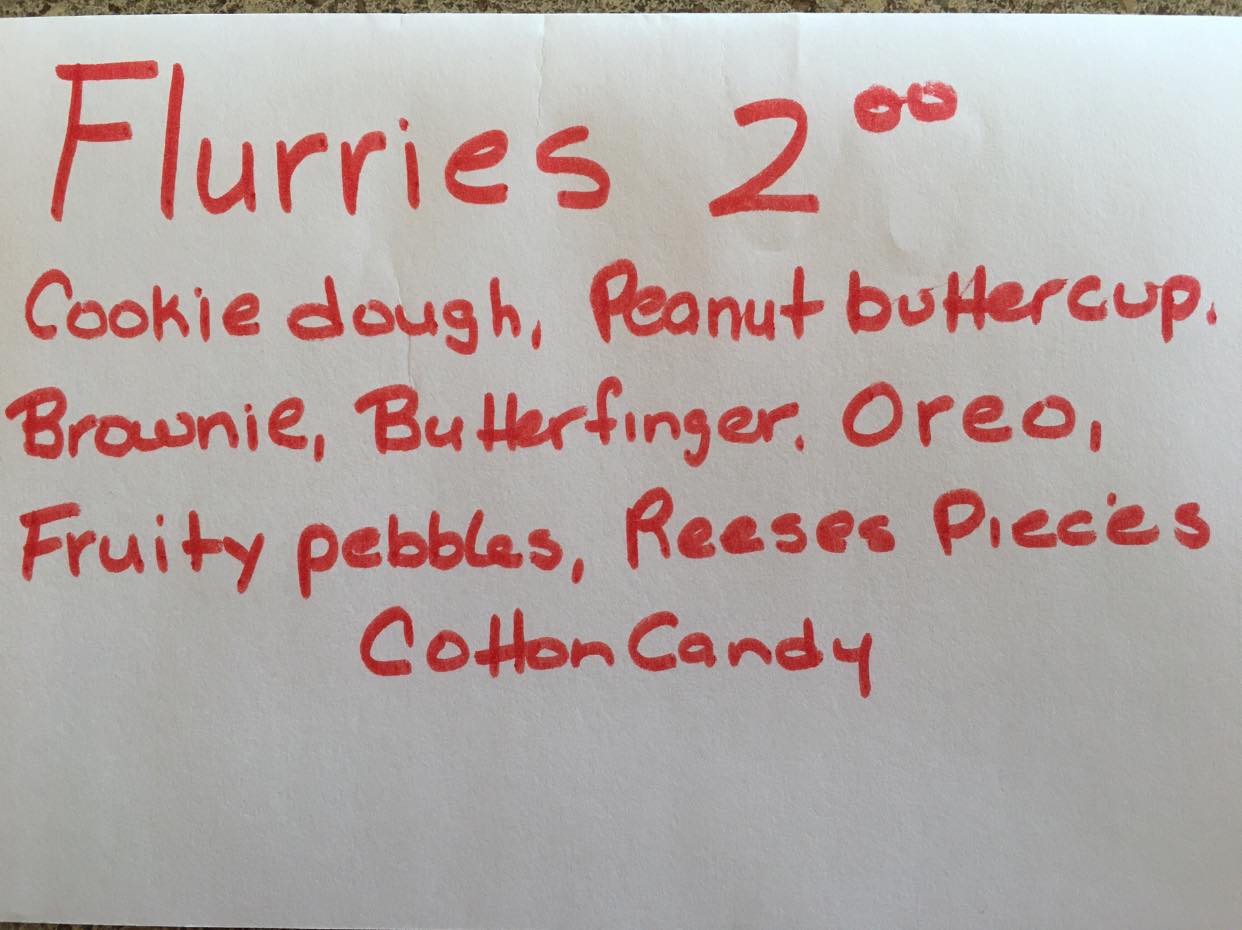 Flurries 2⁰⁰
Cookie dough, Peanut buttercup.
Brownie, Butterfinger. Oreo,
Fruity pebbles, Reeses Pieces
Cotton Candy